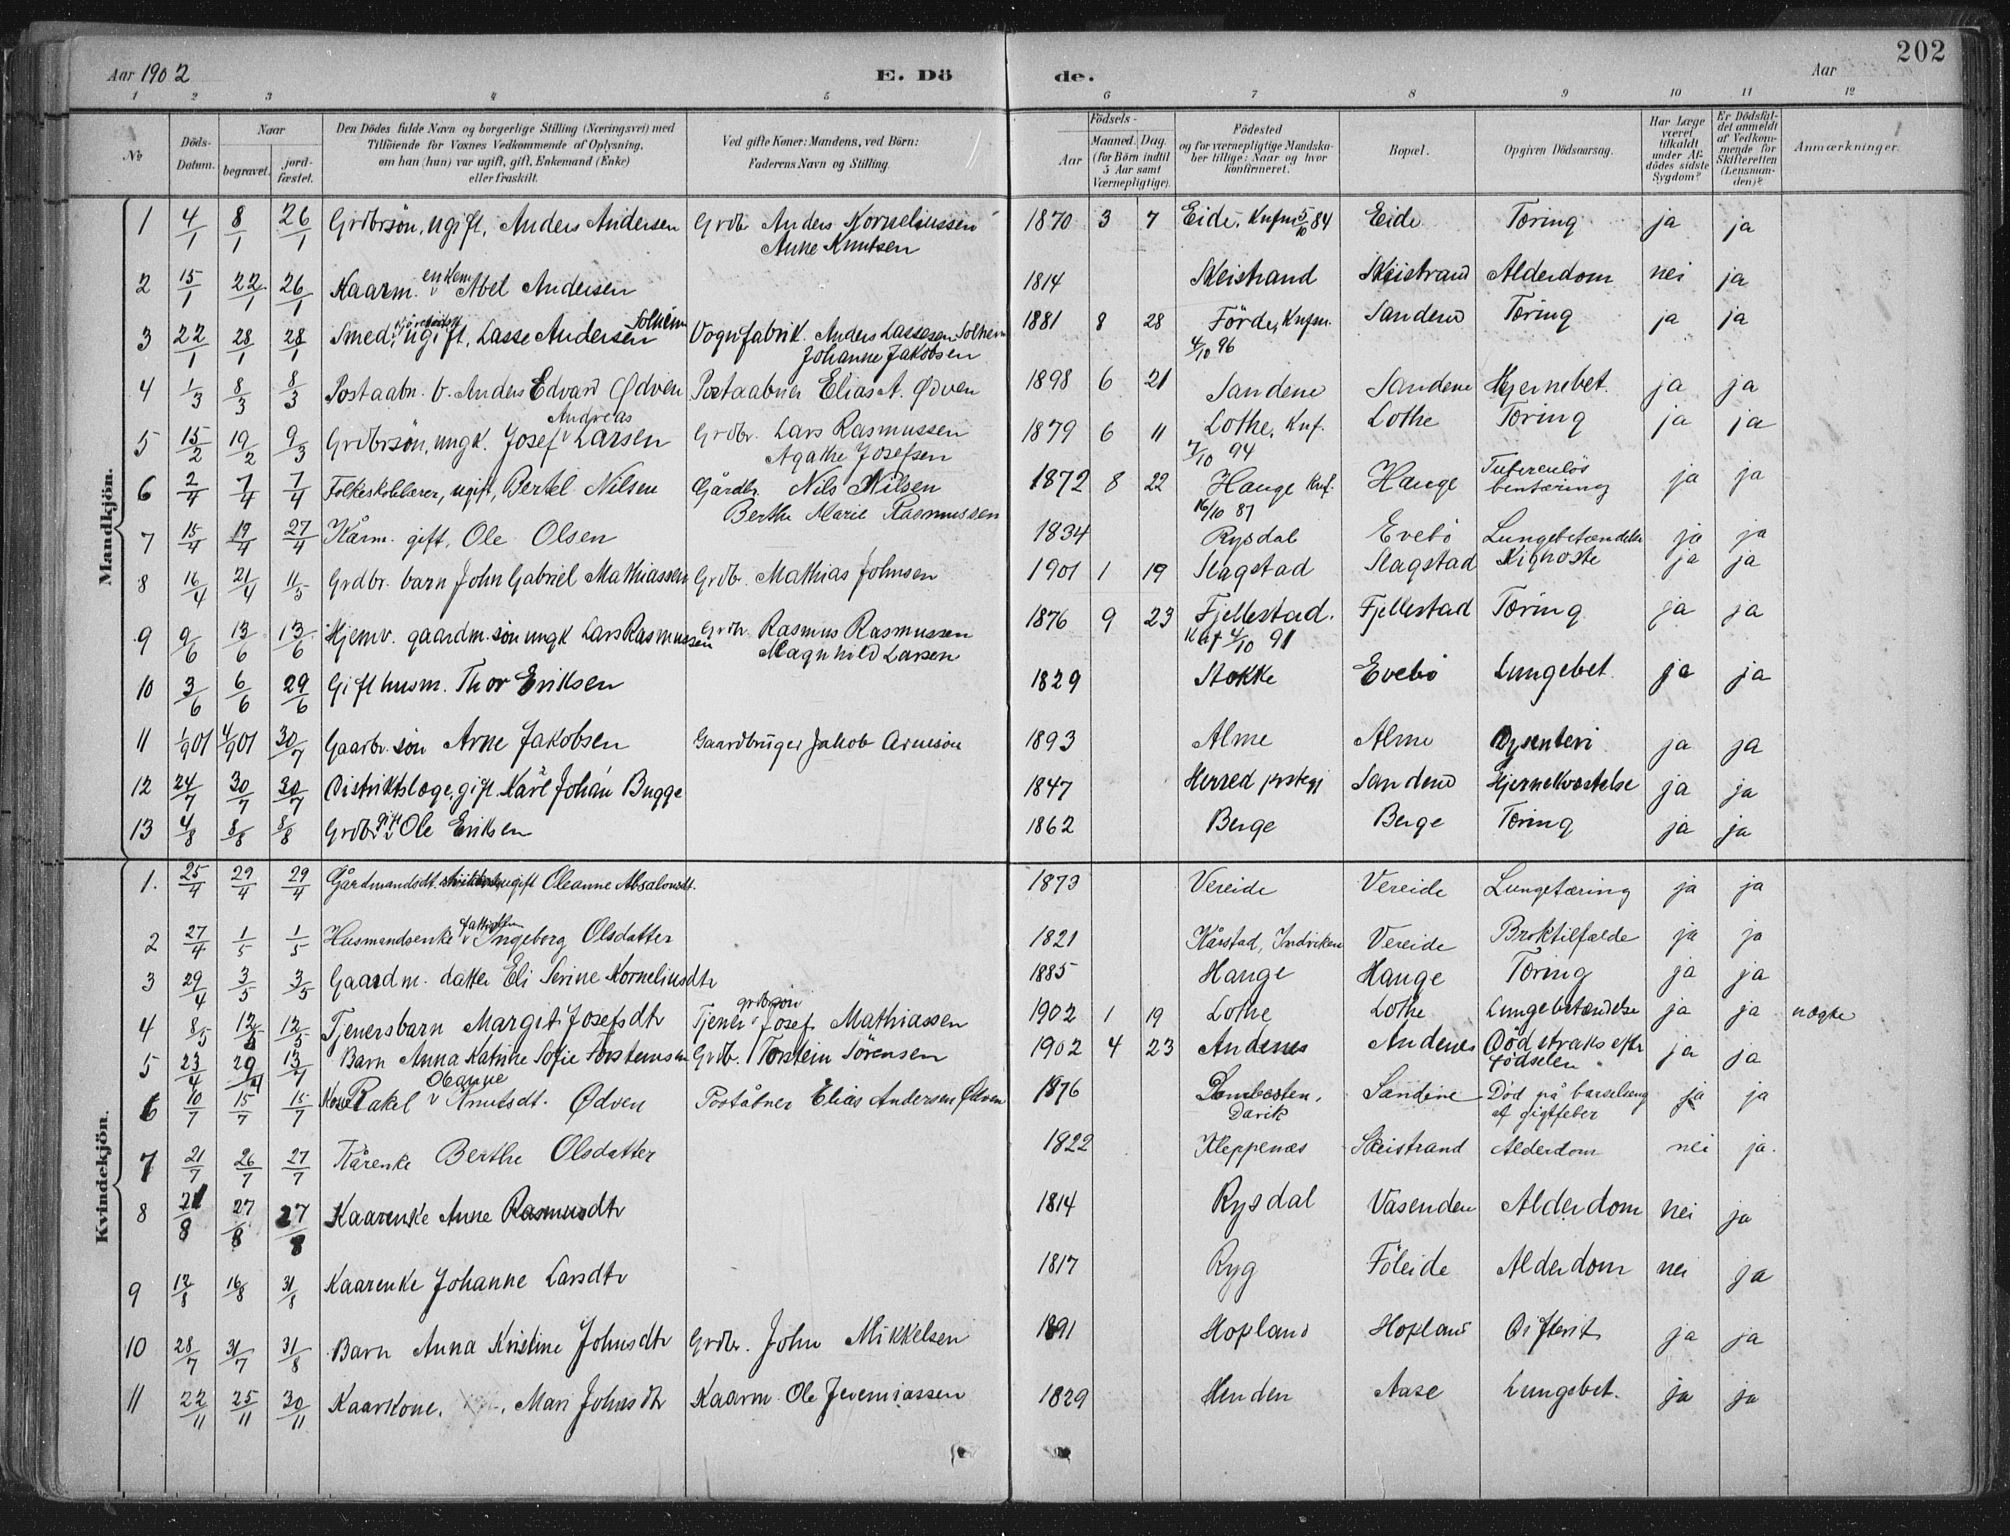 202
Aar 1902 E. Dö de. Aar
1 2 3 4 5 6 7 8 9 10 11 12
No. Döds-Datum. Naar begravet. jordfæstet. Den Dödes fulde Navn og borgerlige Stilling (Næringsvei) med Tilföiende for Voxnes Vedkommende af Oplysning, om han (hun) var ugift, gift, Enkemand (Enke) eller fraskilt. Ved gifte Koner: Mandens, ved Börn: Faderens Navn og Stilling. Födsels- Aar Maaned. Dag. (for Börn indtil 5 Aar samt Værnepligtige). Födested og for værnepligtige Mandskaber tillige: Naar og hvor konfirmeret. Bopæl. Opgiven Dödsaarsag. Har Læge været tilkaldt under Afdödes sidste Sygdom? Er Dödsfaldet anmeldt af Vedkommende for Skifteretten (Lensmanden)? Anmærkninger.
Mandkjön.
1 4/1 8/1 26/1 Grdbrsön, ugift, Anders Andersen Grdbr. Anders Korneliussen 1870 3 7 Eide, Knfm 5/10 84 Eide Tæring ja ja
Anne Knutsen
2 15/1 22/1 26/1 Kaarm. enkem Abel Andersen 1814 Skeistrand Skeistrand Alderdom nei ja
3 22/1 28/1 28/1 Smed, ugift, Lasse Andersen Solheim Vognfabrik. Anders Lassesen Solheim 1881 8 28 Förde, Knfm. Sandene Tæring ja ja
Johanne Jakobsen 4/10 96
4 1/3 8/3 8/3 Postaabn. b. Anders Edvard Ødven Postaabner Elias A. Ødven 1898 6 21 Sandene Sandene Hjernebet. ja ja
5 15/2 19/2 9/3 Grdbrsön, ungk. Josef Andreas Larsen Grdbr. Lars Rasmussen 1879 6 11 Lothe, Knf. Lothe Tæring ja ja
Agathe Josefsen 7/10 94
6 2/4 7/4 7/4 Folkeskolelærer, ugift, Bertel Nilsen Gårdbr. Nils Nilsen 1872 8 22 Hauge Knf. Hauge Tuberculös bentæring ja ja
Berthe Marie Rasmussen 16/10 87
7 15/4 19/4 27/4 Kårm. gift, Ole Olsen 1834 Rysdal Evebö Lungebetændelse ja ja
8 16/4 21/4 11/5 Grdbr. barn John Gabriel Mathiassen Grdbr. Mathias Johnsen 1901 1 19 Slagstad Slagstad Kighoste ja ja
9 9/6 13/6 13/6 Hjemv. gaardm. sön ungk Lars Rasmussen Grdbr. Rasmus Rasmussen 1876 9 23 Fjellestad. Fjellestad Tæring ja ja
Magnhild Larsen Knf 4/10 91
10 3/6 6/6 29/6 Gift husm. Thor Eriksen 1829 Stokke Evebö Lungebet. ja ja
11 1/9 01 4/9 01 30/7 Gaarbr. sön Arne Jakobsen Gaardbruger Jakob Arneson 1893 Alme Alme Dysenteri ja ja
12 24/7 30/7 30/7 Distriktslæge, gift. Karl Johan Bugge 1847 Sandene Hjernekvæstelse ja ja
13 4/8 8/8 8/8 Grdbr. gift Ole Eriksen 1862 Berge Berge Tæring ja ja
Kvindekjön.
1. 25/4 29/4 29/4 Gårdmandsdt. ugift Oleanne Absalonsdt. 1873 Vereide Vereide Lungetæring ja ja
2 27/4 1/5 1/5 Husmandsenke Ingeborg Olsdatter 1821 Kårstad, Indviken Vereide Broktilfælde ja ja
3 29/4 3/5 3/5 Gaardm. datter Eli Serine Korneliusdtr 1885 Hauge Hauge Tæring ja ja
4 8/5 12/5 12/5 Tjenersbarn Margit Josefsdtr Tjener grdbrsön Josef Mathiassen 1902 1 19 Lothe Lothe Lungebetændelse ja ja uægte
5 23/4 29/4 13/7 Barn Anna Katrine Sofie Torsteinsen Grdb. Torstein Sörensen 1902 4 23 Andenes Andenes Död straks efter födselen ja ja
6 10/7 15/7 15/7 Kone Rakel Oleanne Knutsdt. Ødven Postabner Elias Andersen Ødven 1876 Dombesten, Sandene Död på barselseng ja ja
Davik af gigtfeber
7 21/7 26/7 27/7 Kårenke Berthe Olsdatter 1822 Kleppenæs Skeistrand Alderdom nei ja.
8 21/8 27/8 27/8 Kaarenke Anne Rasmusdtr 1814 Rysdal Vasenden Alderdom nei ja
9 12/8 16/8 31/8 Kaarenke Johanne Larsdtr 1817 Ryg Föleide Alderdom nei ja
10 28/7 31/7 31/8 Barn Anna Kristine Johnsdtr Grdbr. John Mikkelsen 1891 Hopland Hopland Difterit ja ja
11 22/11 25/11 30/11 Kaarkone, Mari Johnsdtr Kaarm. Ole Jeremiassen 1829 Henden Aase Lungebet. ja ja